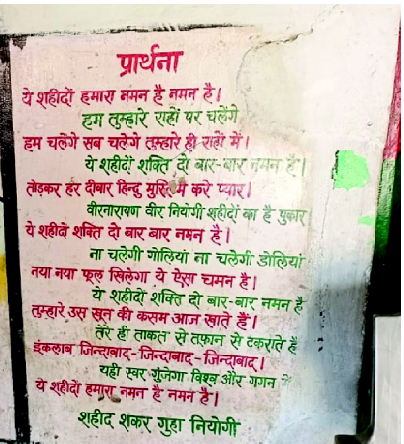 प्रार्थना
ये शहीदों हमारा नमन है नमन है।
हम तुम्हारे राहों पर चलेंगे
हम चलेंगे सब चलेंगे तुम्हारे ही राहों में।
ये शहीदों शक्ति दो बार-बार नमन है।
तोड़कर हर दीवार हिन्दु मुस्लिम करे प्यार।
वीरनारायण वीर नियोगी शहीदों का है पुकार
ये शहीदों शक्ति दो बार बार नमन है।
ना चलेगी गोलियां ना चलेगी डोलियां
नया नया फूल खिलेगा ये ऐसा चमन है।
ये शहीदों शक्ति दो बार-बार नमन है
तुम्हारे उस खून की कसम आज खाते हैं।
तेरे ही ताकत से तूफान से टकराते हैं
इंकलाब जिन्दाबाद-जिन्दाबाद-जिन्दाबाद।
यही स्वर गुंजेगा विश्व और गगन में
ये शहीदों हमारा नमन है नमन है।
शहीद शंकर गुहा नियोगी